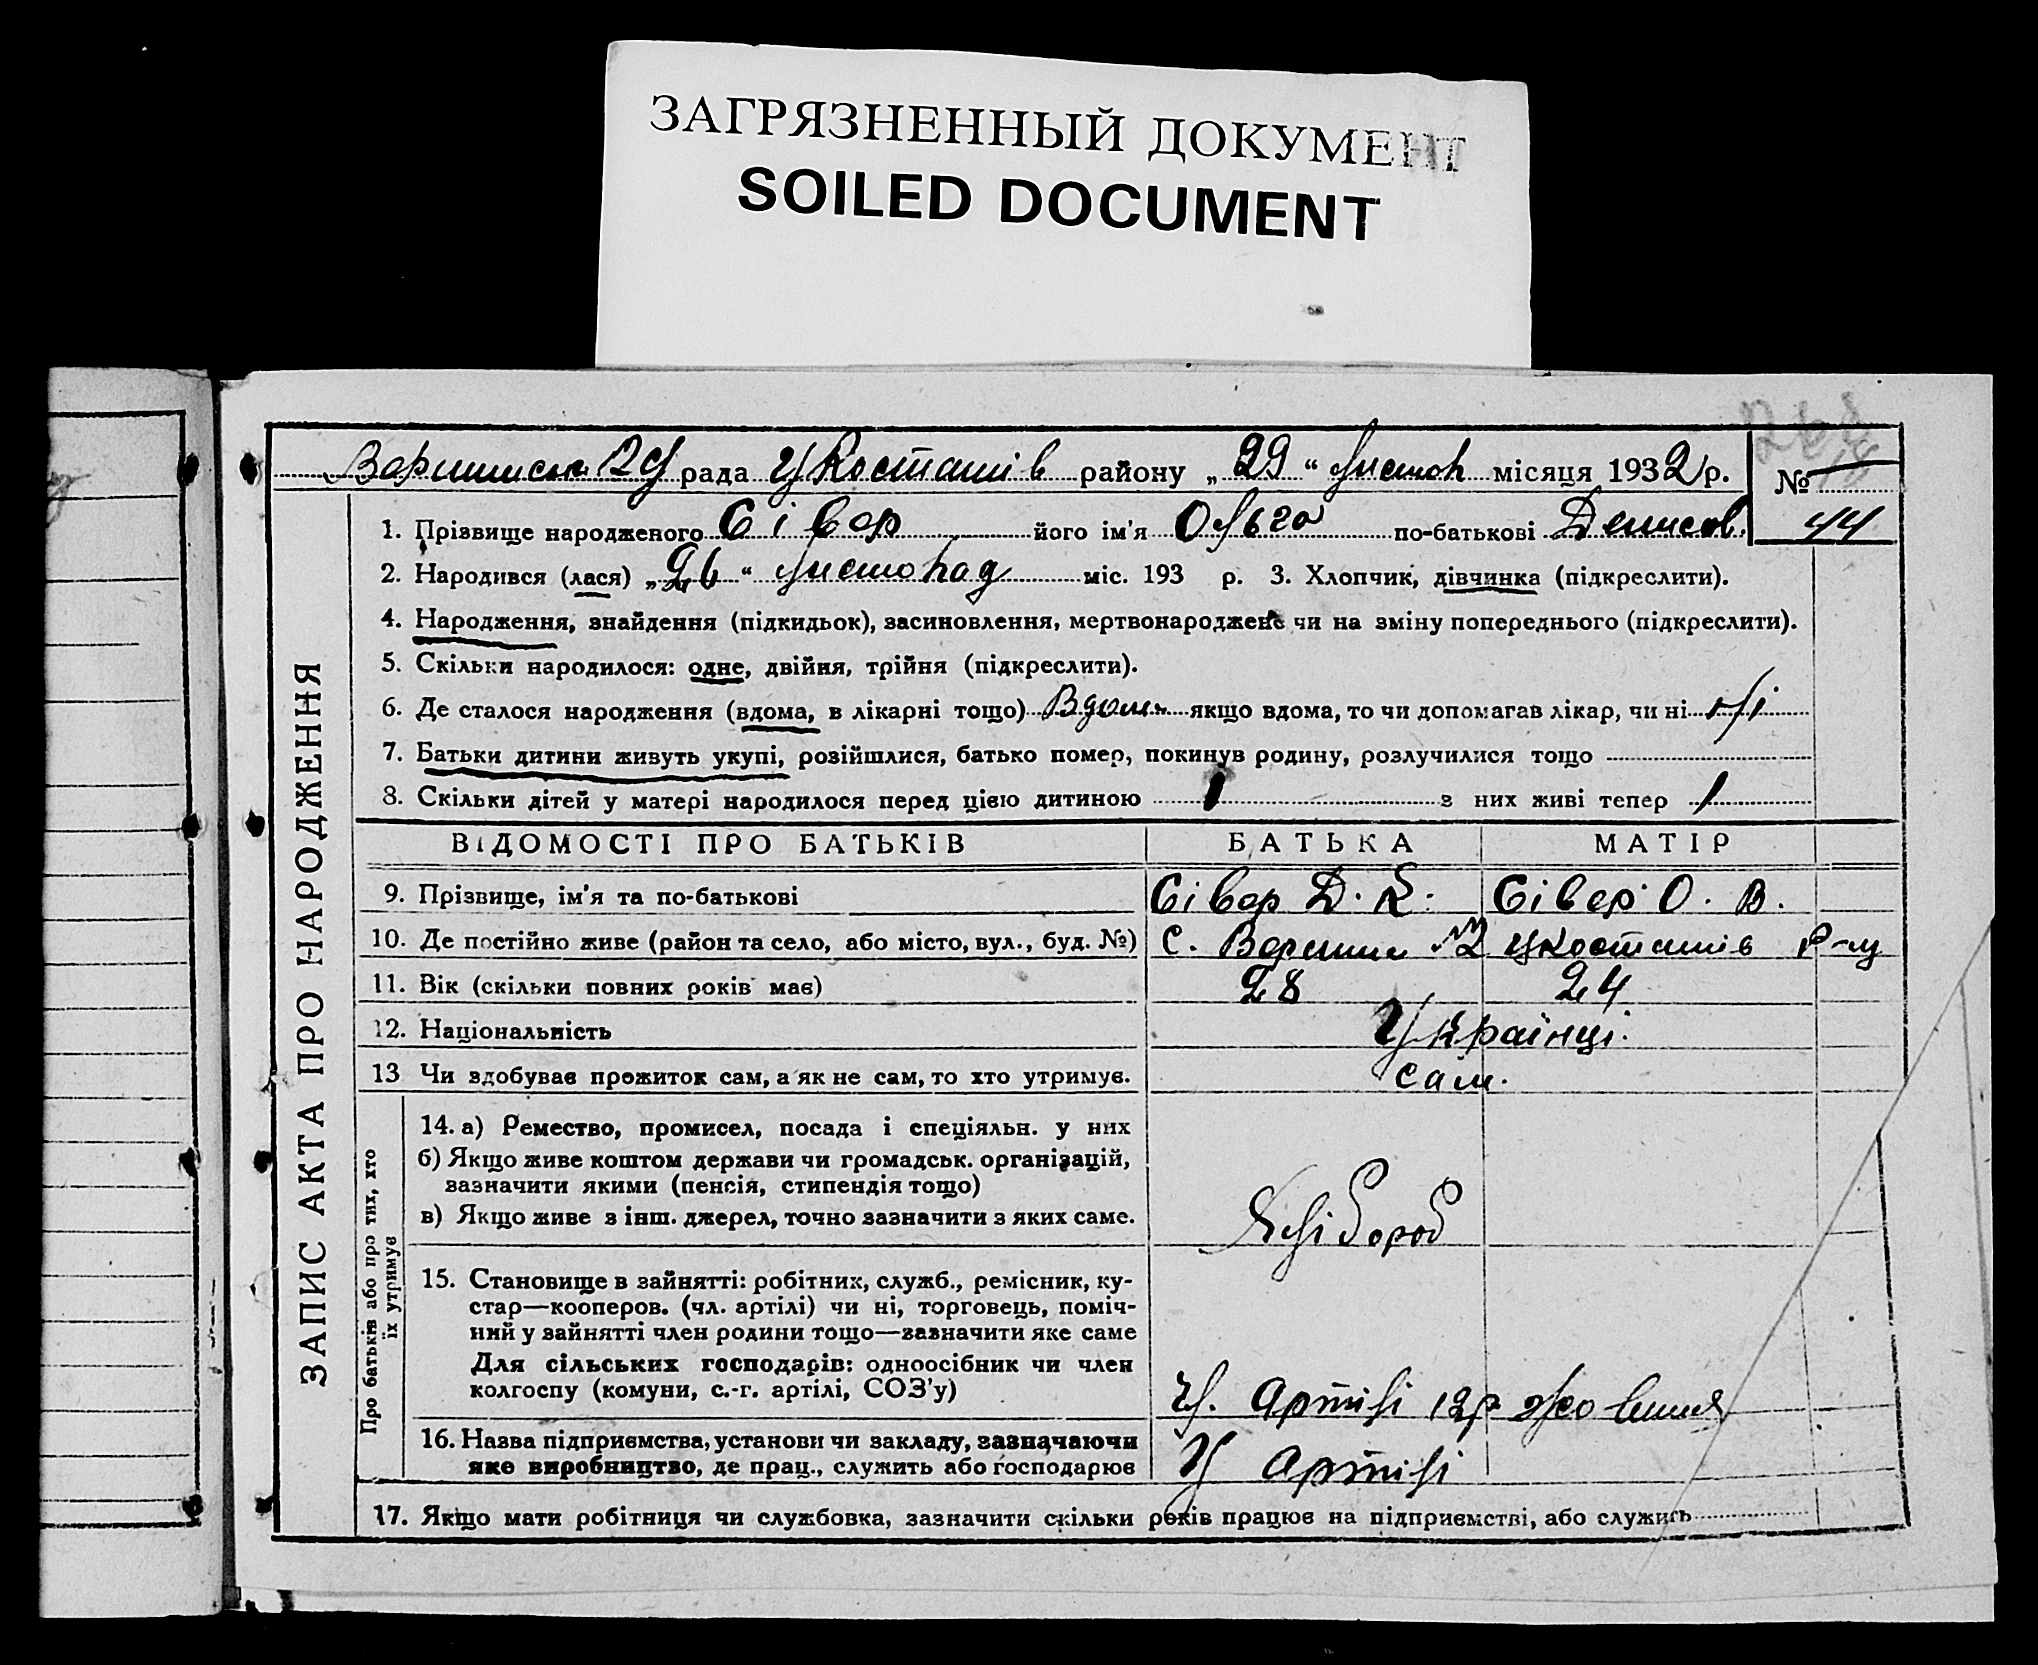 ЗАГРЯЗНЕННЫЙ ДОКУМЕНТ
SOILED DOCUMENT
рада районУ „29“ Листоп місяця 1932 р. №
44
1. Прізвище народженого Сівер його ім'я Ольга по-батькові Денисов.
2. Народився (лася) „26“ Листопад міс. 193 р. 3. Хлопчик, дівчинка (підкреслити).
4. Народження, знайдення (підкидьок), засиновлення, мертвонароджене чи на зміну попереднього (підкреслити).
5. Скільки народилося: одне, двійня, трійня (підкреслити).
6. Де сталося народження (вдома, в лікарні тощо) Вдома якщо вдома, то чи допомагав лікар, чи ні Ні
7. Батьки дитини живуть укупі, розійшлися, батько помер, покинув родину, розлучилися тощо
8. Скільки дітей у матері народилося перед цією дитиною 1 з них живі тепер 1
ВІДОМОСТІ ПРО БАТЬКІВ БАТЬКА МАТІР
9. Прізвище, ім'я та по-батькові Сівер Д. К. Сівер О. В.
10. Де постійно живе (район та село, або місто, вул., буд. №) с. р-ну
11. Вік (скільки повних років має) 28 24
12. Національність Українці.
13 Чи здобував прожиток сам, а як не сам, то хто утримув. сам.
14. а) Ремество, промисел, посада і спеціяльн. у них
б) Якщо живе коштом держави чи громадськ. організацій,
зазначити якими (пенсія, стипендія тощо)
в) Якщо живе з інш. джерел, точно зазначити з яких саме.
Хлібороб
15. Становище в зайнятті: робітник, служб., ремісник, ку-
стар—кооперов. (чл. артілі) чи ні, торговець, поміч-
ний у зайнятті член родини тощо—зазначити яке саме
Для сільських господарів: одноосібник чи член
колгоспу (комуни, с.-г. артілі, СОЗ'у)
чл. Артілі Жовтня
16. Назва підприємства, установи чи закладу, зазначаючи
яке виробництво, де прац., служить або господарює
У артілі
17. Якщо мати робітниця чи службовка, зазначити скільки років працює на підприємстві, або служить
ЗАПИС АКТА ПРО НАРОДЖЕННЯ
Про батьків або про тих, хто
їх утримув